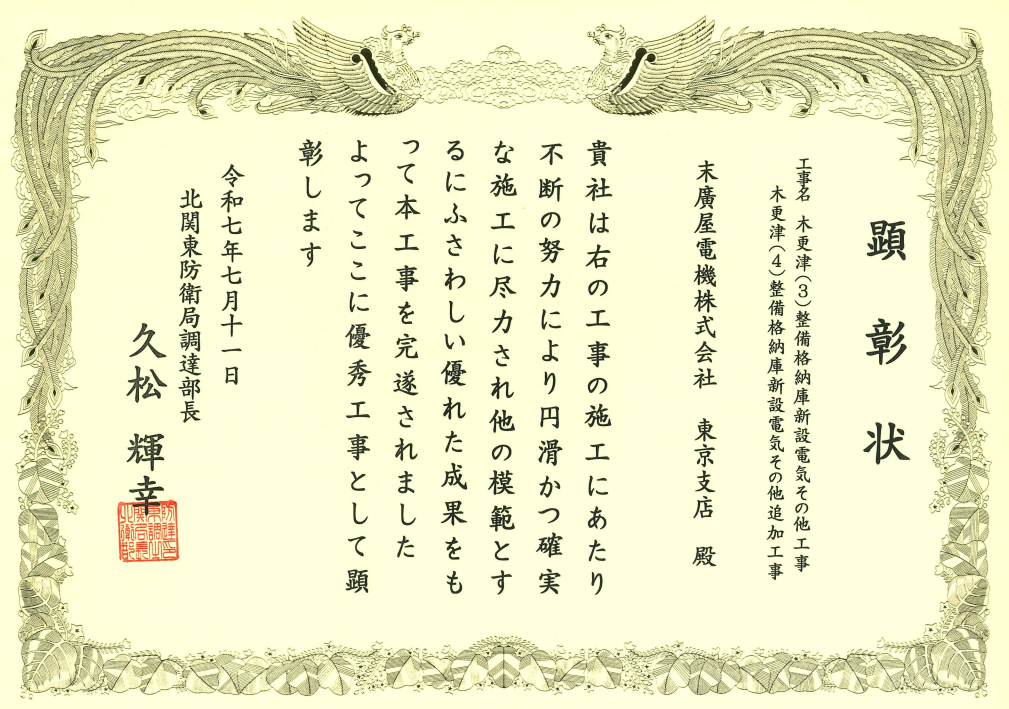 顕彰状
工事名 木更津（3）整備格納庫新設電気その他工事
木更津（4）整備格納庫新設電気その他追加工事
末廣屋電機株式会社 東京支店 殿
貴社は右の工事の施工にあたり
不断の努力により円滑かつ確実
な施工に尽力され他の模範とす
るにふさわしい優れた成果をも
って本工事を完遂されました
よってここに優秀工事として顕
彰します
令和七年七月十一日
北関東防衛局調達部長
久松 輝幸